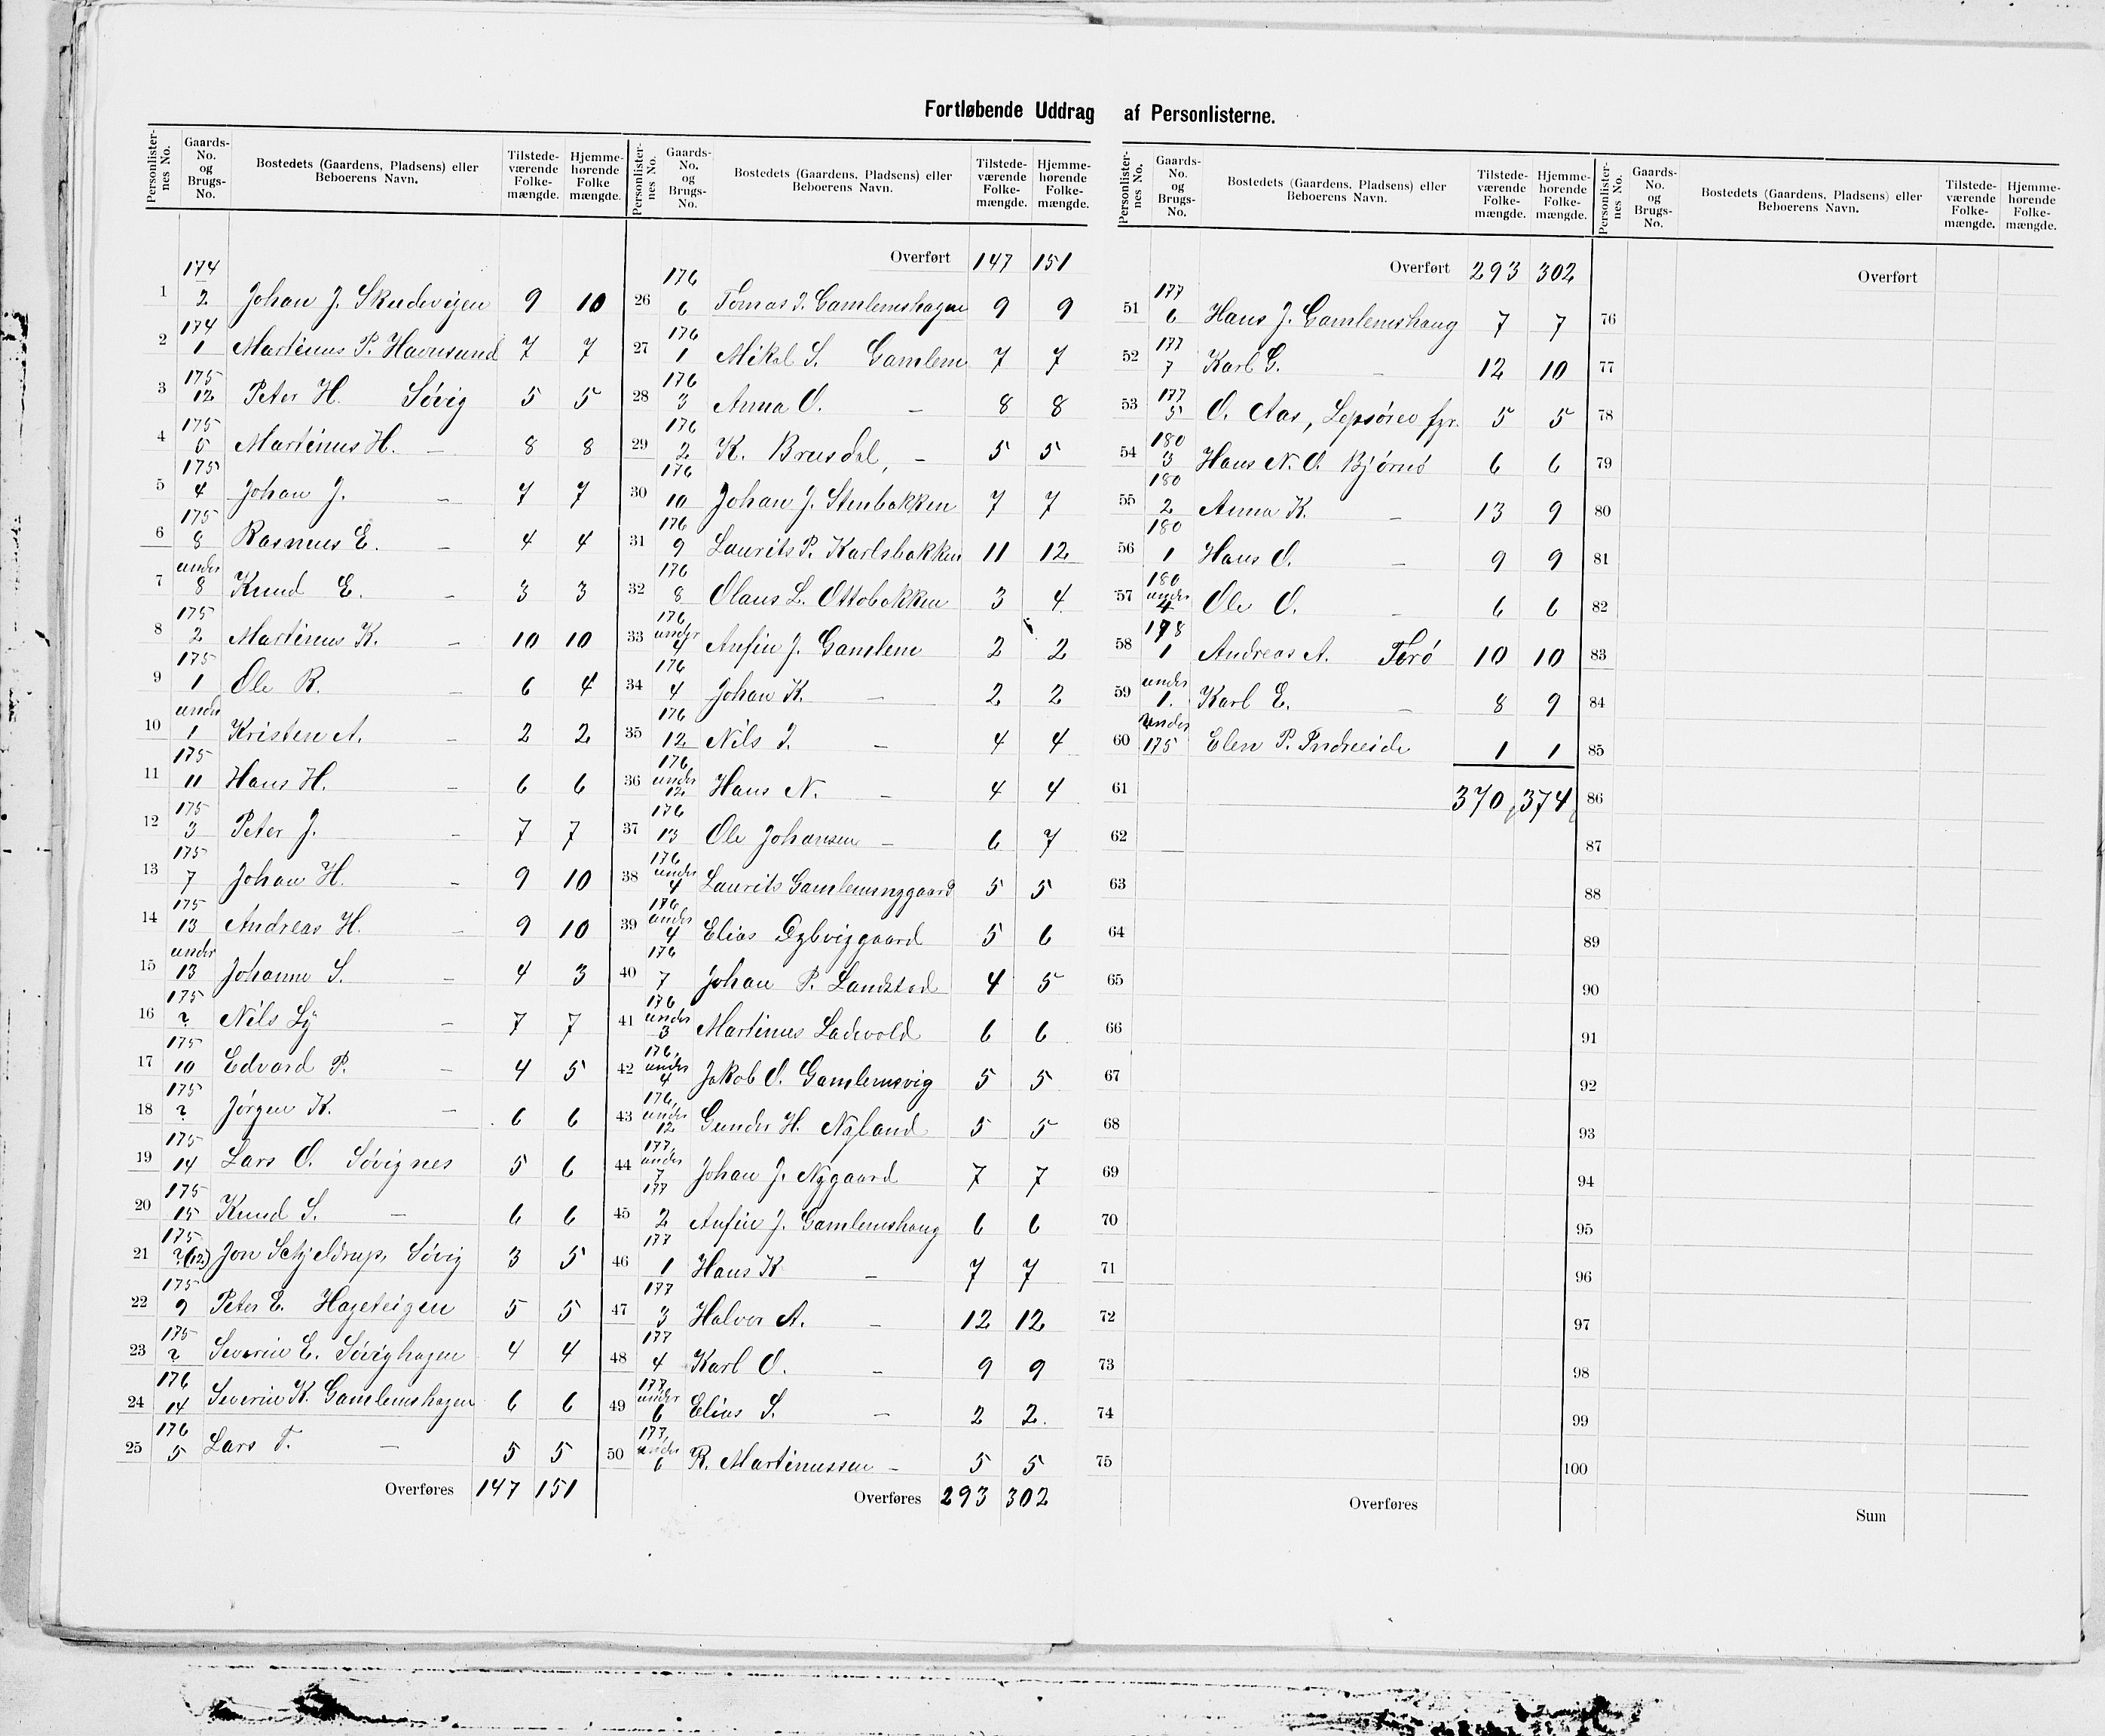 Fortløbende Uddrag af Personlisterne.
Personlister-nes No. Gaards-No. og Brugs-No. Bostedets (Gaardens, Pladsens) eller Beboerens Navn. Tilstede-værende Folke-mængde. Hjemme-hørende Folke mængde.
1 174 2 Johan J. Skudevigen 9 10
2 174 1 Martinus P. Havnsund 7 7
3 175 12 Peter H. Søvig 5 5
4 175 5 Martinus H. — 8 8
5 175 4 Johan J. — 7 7
6 175 8 Rasmus E. — 4 4
7 under 8 Knud E. — 3 3
8 175 2 Martinus K. — 10 10
9 175 1 Ole R. — 6 4
10 under 1 Kristen A. — 2 2
11 175 11 Hans H. — 6 6
12 175 3 Peter J. — 7 7
13 175 7 Johan H. — 9 10
14 175 13 Andreas H. — 9 10
15 under 13 Johanne S. — 4 3
16 175 ? Nils Ly — 7 7
17 175 10 Edvard P. — 4 5
18 175 ? Jørgen K. — 6 6
19 175 14 Lars O. Søvignes 5 6
20 175 15 Knud S. — 6 6
21 175 ?(12) Jon Schjeldrup, Søvig 3 5
22 175 9 Peter E. Hageteigen 5 5
23 175 ? Severin E. Søvighagen 4 4
24 176 14 Severin K. Gamlemshagen 6 6
25 176 5 Lars T. — 5 5
Overføres 147 151
Personlister-nes No. Gaards-No. og Brugs-No. Bostedets (Gaardens, Pladsens) eller Beboerens Navn. Tilstede-værende Folke-mængde. Hjemme-hørende Folke-mængde.
Overført 147 151
26 176 6 Tomas I. Gamlemshagen 9 9
27 176 1 Mikal S. Gamlem 7 7
28 176 3 Anna O. — 8 8
29 176 2 K. Brusdal, — 5 5
30 176 10 Johan J. Stenbakken 7 7
31 176 9 Laurits P. Karlsbakken 11 12
32 176 8 Olaus L. Ottobakken 3 4
33 176 under 4 Anfin J. Gamlem 2 2
34 176 4 Johan K. — 2 2
35 176 12 Nils I. — 4 4
36 176, under 12 Hans N. — 4 4
37 176 13 Ole Johansen — 6 7
38 176 under 4 Laurits Gamlemnygaard 5 5
39 176 under 4 Elias Dybvizgaard 5 6
40 176 7 Johan P. Landstad 4 5
41 176 under 3 Martinus Ladevold 6 6
42 176, under 4 Jakob O. Gamlemsvig 5 5
43 176, under 12 Gunder H. Nyland 5 5
44 177, under 7 Johan J. Nygaard 7 7
45 177 2 Anfin J. Gamlemshaug 6 6
46 177 1 Hans K — 7 7
47 177 3 Halvor A. — 12 12
48 177 4 Karl O. — 9 9
49 177, under 6 Elias S. — 2 2.
50 177, under 6 R. Martinussen — 5 5
Overføres 293 302
Personlister-nes No. Gaards-No. og Brugs-No. Bostedets (Gaardens, Pladsens) eller Beboerens Navn. Tilstede-værende Folke-mængde. Hjemme-hørende Folke-mængde.
Overført 293 302
51 177 6 Hans J. Gamlemshaug 7 7
52 177 7 Karl G. — 12 10
53 177 5 O. Aas, Lepsørev fyr. 5 5
54 180 3 Hans N. O. Bjørnø 6 6
55 180 2 Anna K. — 13 9
56 180 1 Hans O. — 9 9
57 180 under 4 Ole O. — 6 6
58 178 1 Andreas A. Terø 10 10
59 under 1. Karl E. — 8 9
60 under 175 Elen P. Indreeide 1 1
61 370 374
62
63
64
65
66
67
68
69
70
71
72
73
74
75
Overføres
Personlister-nes No. Gaards-No. og Brugs-No. Bostedets (Gaardens, Pladsens) eller Beboerens Navn. Tilstede-værende Folke-mængde. Hjemme-hørende Folke-mængde.
Overført
76
77
78
79
80
81
82
83
84
85
86
87
88
89
90
91
92
93
94
95
96
97
98
99
100
Sum